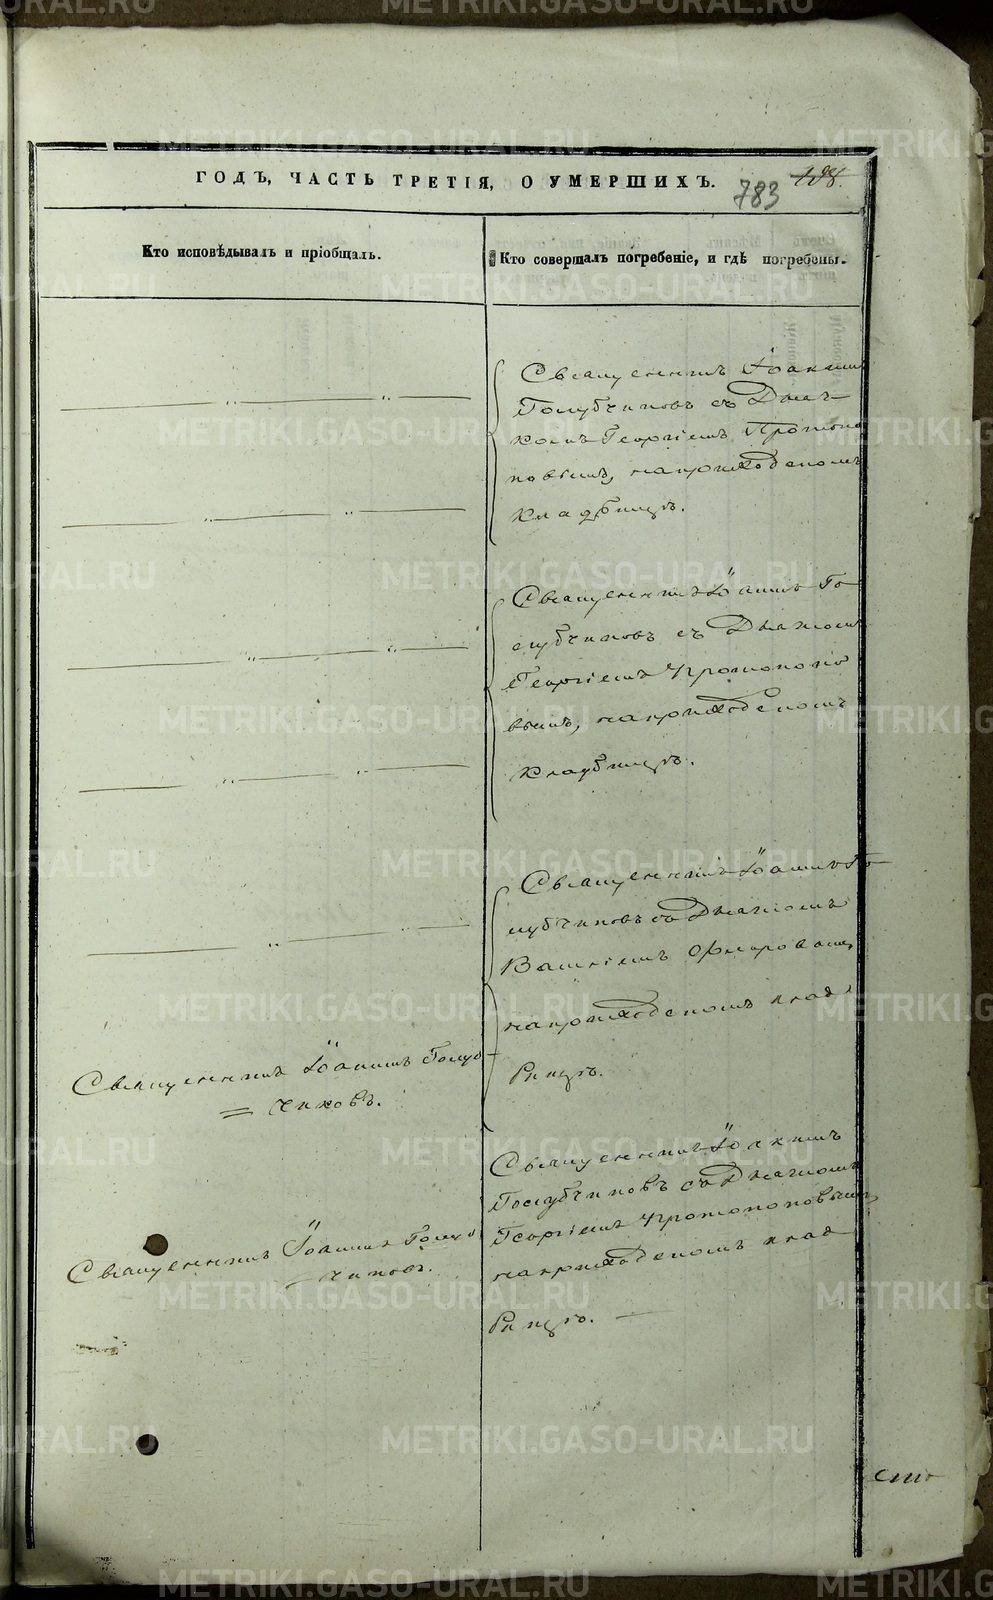 ГОДЪ, ЧАСТЬ ТРЕТІЯ, О УМЕРШИХЪ.
783
198.
Кто исповѣдывалъ и пріобщалъ.
Кто совершалъ погребеніе, и гдѣ погребены.
Священникъ Іоакимъ
Голубчиковъ съ Дьяч-
комъ Георгіемъ Протопо
повымъ, на приходскомъ
кладбищѣ.
Священникъ Іоакимъ Го-
лубчиковъ съ Дьячкомъ
Георгіемъ Протопопо
вымъ, на приходскомъ
кладбищѣ.
Священникъ Іоакимъ Го-
лубчиковъ съ Дьячкомъ
Василіемъ
на приходскомъ клад-
бищѣ.
Священникъ Іоакимъ Голуб-
чиковъ.
Священникъ Іоакимъ
Голубчиковъ съ Дьячкомъ
Георгіемъ Протопоповымъ,
на приходскомъ клад-
бищѣ.
Священникъ Іоакимъ Голуб
чиковъ.
METRIKI.GASO-URAL.RU